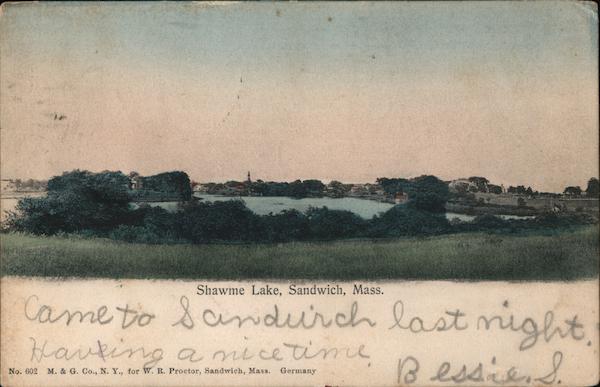 Shawme Lake, Sandwich, Mass.
Came to Sandwich last night.
Having a nice time.
Bessie. S.
No. 602 M. & G. Co., N. Y., for W. R. Proctor, Sandwich, Mass. Germany